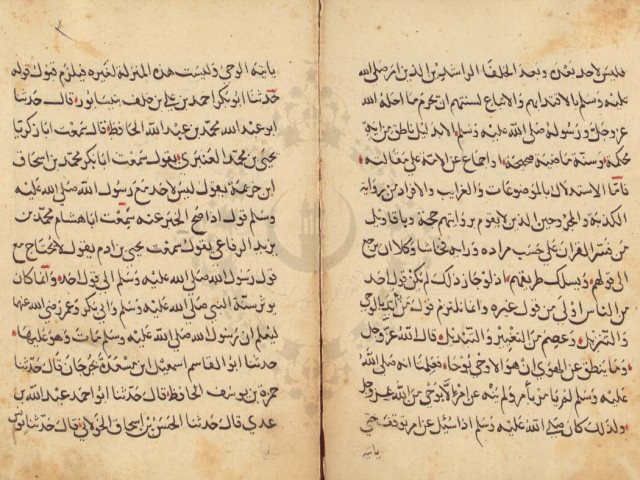 فليس لاحد بعده وبعد الخلفا الراشدين الذين امر صلى الله
عليه وسلم بالاقتدابهم والاتباع لسنتهم ان يحرم ما احله الله
عز وجل ورسوله صلى الله عليه وسلم الا بدليل ناطق من اية
محكمة او سنة ماضية صحيحة او اجماع من الامة على مقالته
فاما الاستدلال بالموضوعات والغرايب والافراد من رواية
الكذبة والمجروحين الذين لا يقوم بروايتهم حجة وباقاويل
من فسر القران على حسب مراده ورايه فحاشا وكلا ان يرجع
الى قولهم ويسلك طريقتهم اذ لو جاز ذلك لم يكن قول احد
من الناس اولى من قول غيره وانما يلزم قول من ايد بالوحي
والتنزيل وعصم من التغيير والتبديل قال الله عز وجل
وما ينطق عن الهوى ان هو الا وحي يوحى فعلمنا انه صلى الله
عليه وسلم لم يامر بامر ولم ينه عن امر الا بوحي من الله عز وجل
ولذلك كان صلى الله عليه وسلم اذا سئل عن امر توقف حتى
ياتيه
ياتيه الوحي وليست هذه المنزلة لغيره فيلزم قبول قوله
حدثنا ابو بكر احمد بن علي بن خلف بنيسابور قال حدثنا
ابو عبد الله محمد بن عبد الله الحافظ قال سمعت ابا زكريا
يحيى بن محمد العنبري يقول سمعت ابا بكر محمد بن اسحاق
ابن خزيمة يقول ليس لاحد مع رسول الله صلى الله عليه
وسلم قول اذا صح الخبر عنه سمعت ابا هشام محمد بن
يزيد الرفاعي يقول سمعت يحيى بن ادم يقول لا يحتاج مع
قول رسول الله صلى الله عليه وسلم الى قول احد وانما كان
يقال سنة النبي صلى الله عليه وسلم وابي بكر وعمر رضي الله عنهما
ليعلم ان رسول الله صلى الله عليه وسلم مات وهو عليها
حدثنا ابو القاسم اسمعيل بن مسعدة بجرجان قال حدثنا
حمزة بن يوسف الحافظ قال حدثنا ابو احمد عبد الله بن
عدي قال حدثنا الحسن بن اسحاق الخولاني قال حدثنا يونس